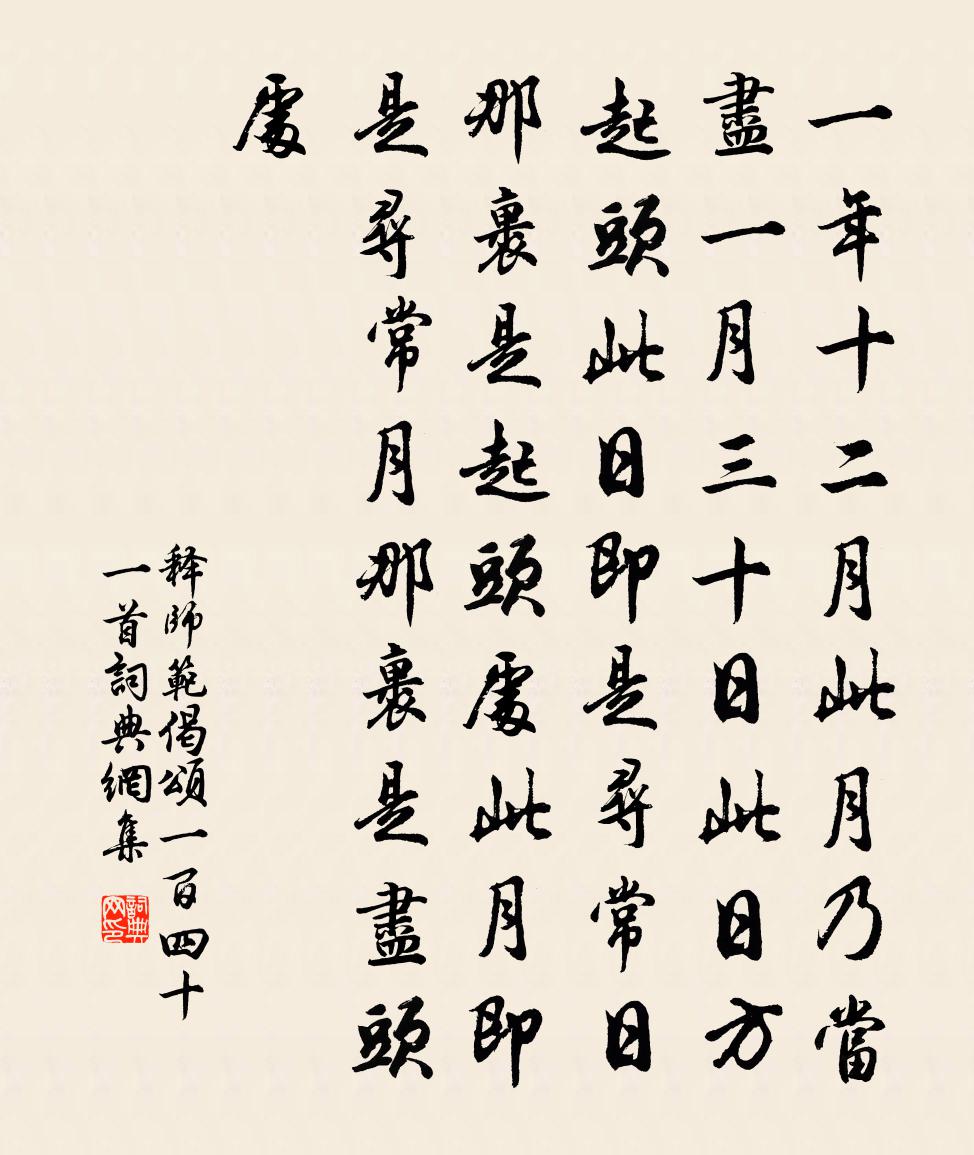 一年十二月此月乃當
盡一月三十日此日方
起頭此日即是尋常日
那裏是起頭處此月即
是尋常月那裏是盡頭
處
释師範偈頌一百四十
一首詞典網集
詞典網印